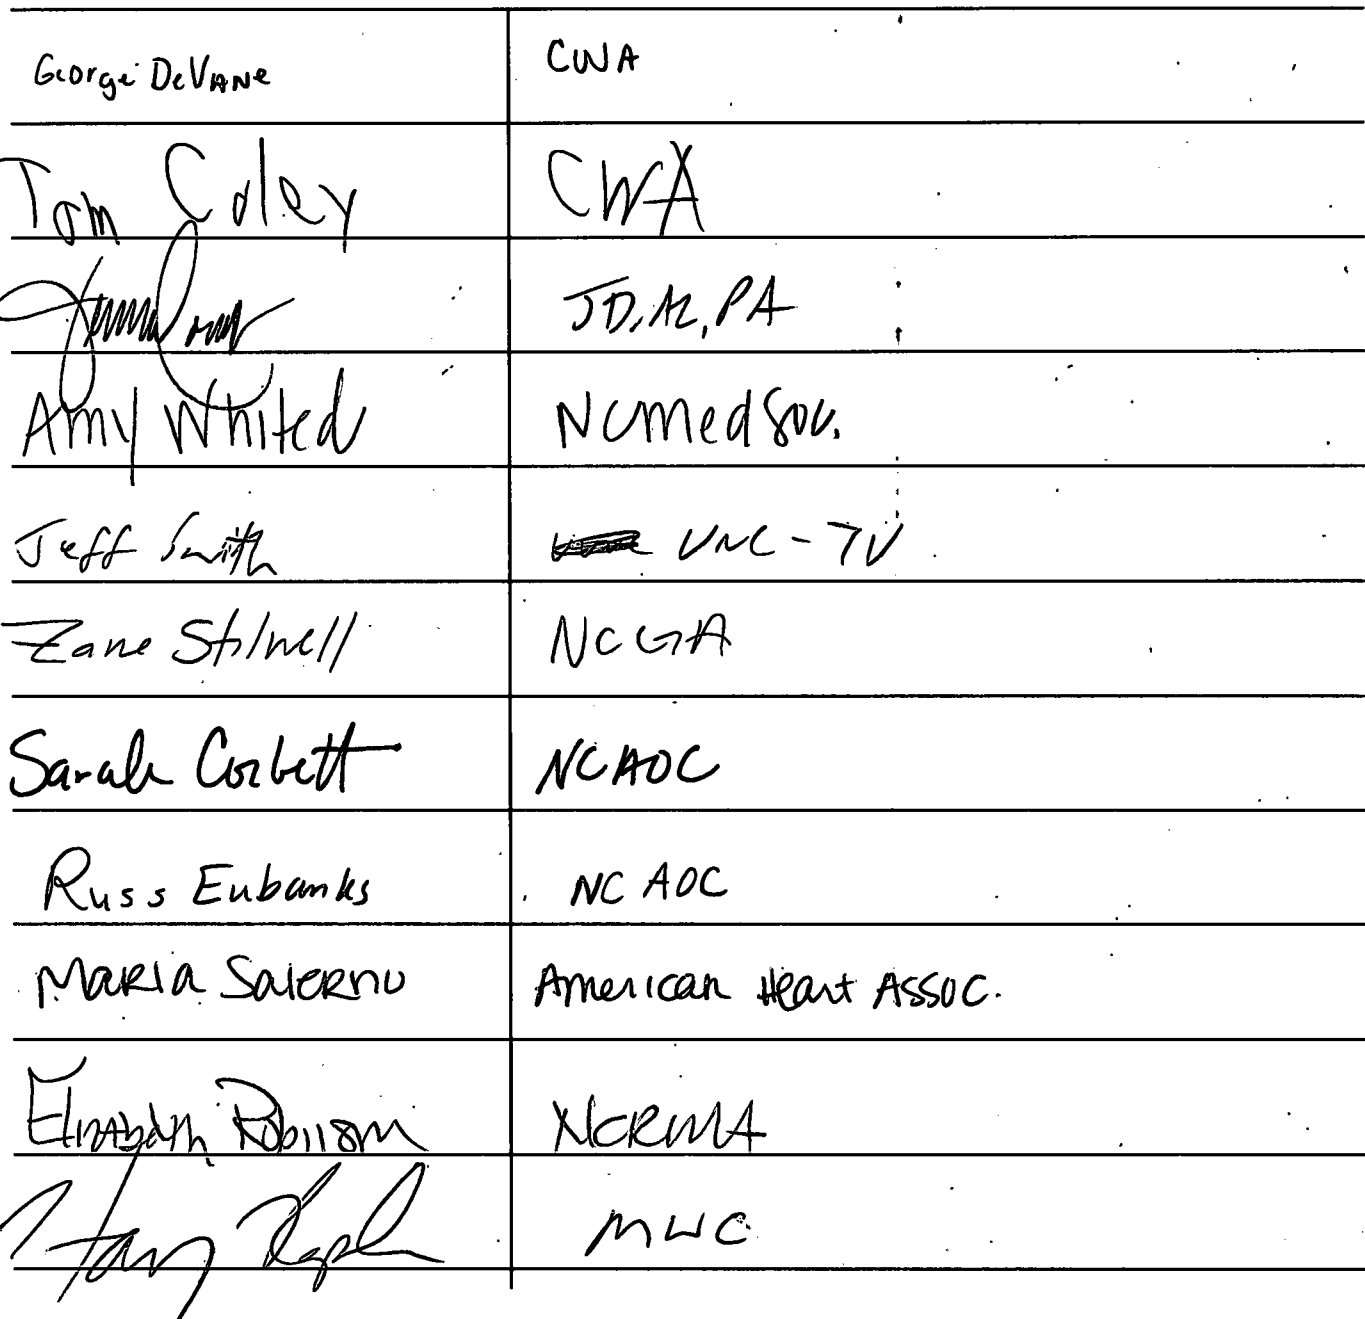 George DeVane CWA
Tom Coley CWA
JD, AZ, PA
Amy Whited NCMedSoc.
Jeff Smith UNC-TV
Zane Stilwell NCGA
Sarah Corbett NCAOC
Russ Eubanks NC AOC
Maria Salerno American Heart Assoc.
Elizabeth Robinson NCRMA
Harry Kaplan MWC